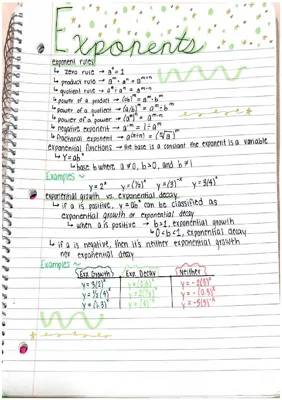 Exponents
exponent rules
↳ zero rule → a⁰ = 1
↳ product rule → aᵐ · aⁿ = aᵐ⁺ⁿ
↳ quotient rule → aᵐ ÷ aⁿ = aᵐ⁻ⁿ
↳ power of a product → (ab)ᵐ = aᵐ · bᵐ
↳ power of a quotient → (a/b)ᵐ = aᵐ ÷ bᵐ
↳ power of a power → (aᵐ)ⁿ = aᵐⁿ
↳ negative exponent → a⁻ᵐ = 1 ÷ aᵐ
↳ fractional exponent →
exponential functions → the base is a constant the exponent is a variable
↳ y = abˣ
↳ base b where a ≠ 0, b > 0, and b ≠ 1
Examples ~
y = 2ˣ y = (½)ˣ y = (3)⁻ˣ y = 3(4)ˣ
exponential growth vs. exponential decay
↳ if a is positive, y = abˣ can be classified as
exponential growth or exponential decay
↳ when a is positive → b > 1, exponential growth
↳ 0 < b < 1, exponential decay
↳ if a is negative, then it's neither exponential growth
nor exponential decay
Examples ~
Exp. Growth Exp. Decay Neither
y = 3(2)ˣ
y = ½(4)ˣ